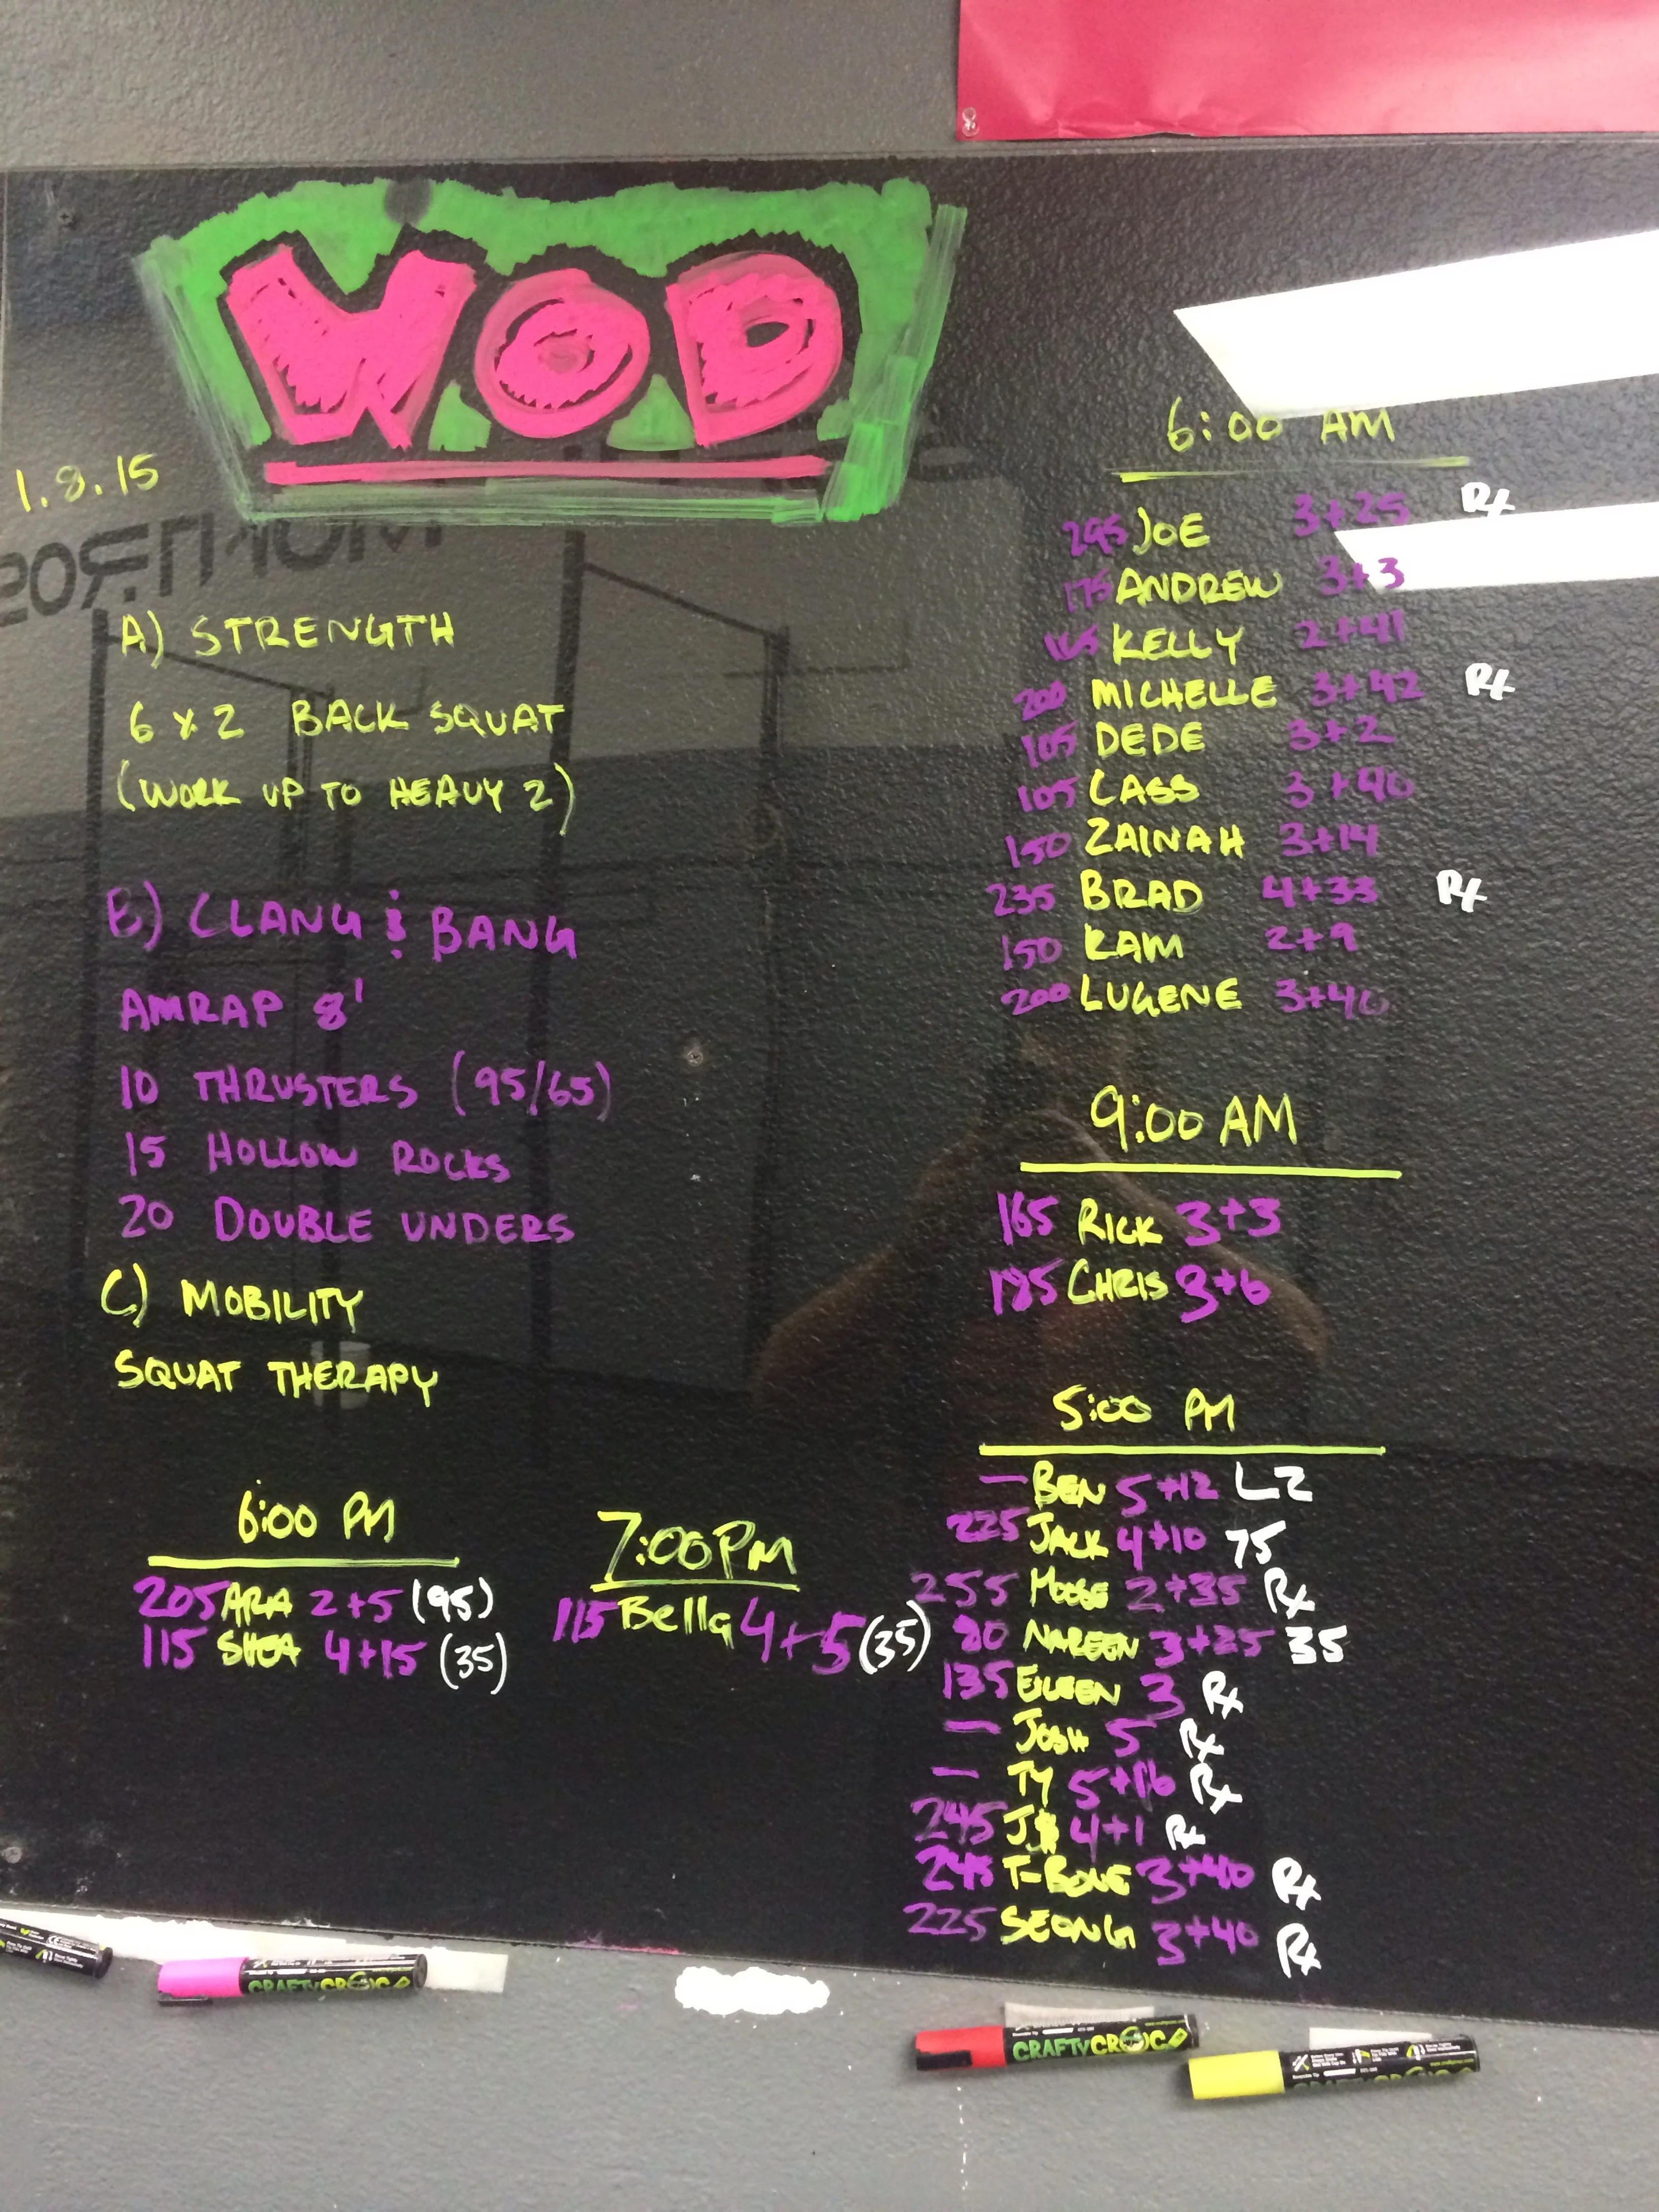 WOD
1.8.15
A) STRENGTH
6 x 2 BACK SQUAT
(WORK UP TO HEAVY 2)
B) CLANG & BANG
AMRAP 8'
10 THRUSTERS (95/65)
15 HOLLOW ROCKS
20 DOUBLE UNDERS
C) MOBILITY
SQUAT THERAPY
6:00 PM
205 ARA 2+5 (95)
115 SHEA 4+15 (35)
7:00 PM
115 Bella 4+5 (35)
6:00 AM
295 JOE 3+25 Rx
175 ANDREW 3+3
165 KELLY 2+41
200 MICHELLE 3+42 Rx
105 DEDE 3+2
105 CASS 3+40
150 ZAINAH 3+14
235 BRAD 4+33 Rx
150 KAM 2+9
200 LUGENE 3+40
9:00 AM
165 RICK 3+3
185 CHRIS 3+6
5:00 PM
— BEN 5+12 L2
225 JACK 4+10 75
255 MOOSE 2+35 Rx
80 NAREEN 3+25 35
135 EILEEN 3 Rx
— JOSH 5 Rx
— TY 5+16 Rx
245 J$ 4+1 Rx
245 T-BONE 3+40 Rx
225 SEONG 3+40 Rx
CRAFTYCROC
CRAFTYCROC